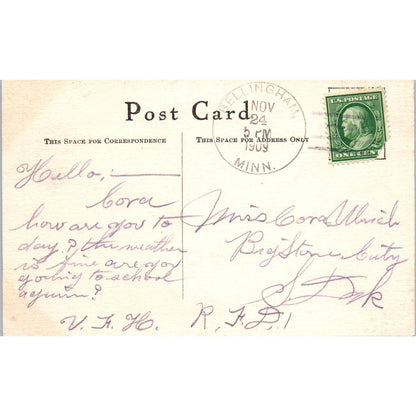 Post Card
THIS SPACE FOR CORRESPONDENCE
THIS SPACE FOR ADDRESS ONLY
BELLINGHAM,
NOV
24
5 PM
1909
MINN.
U.S. POSTAGE
ONE CENT
Hello,
Cora
how are you to
day? the weather
is fine are you
going to school
again?
V. F. H.
Miss Cora Ulrich
Big Stone City
S Dak
R. F. D. 1